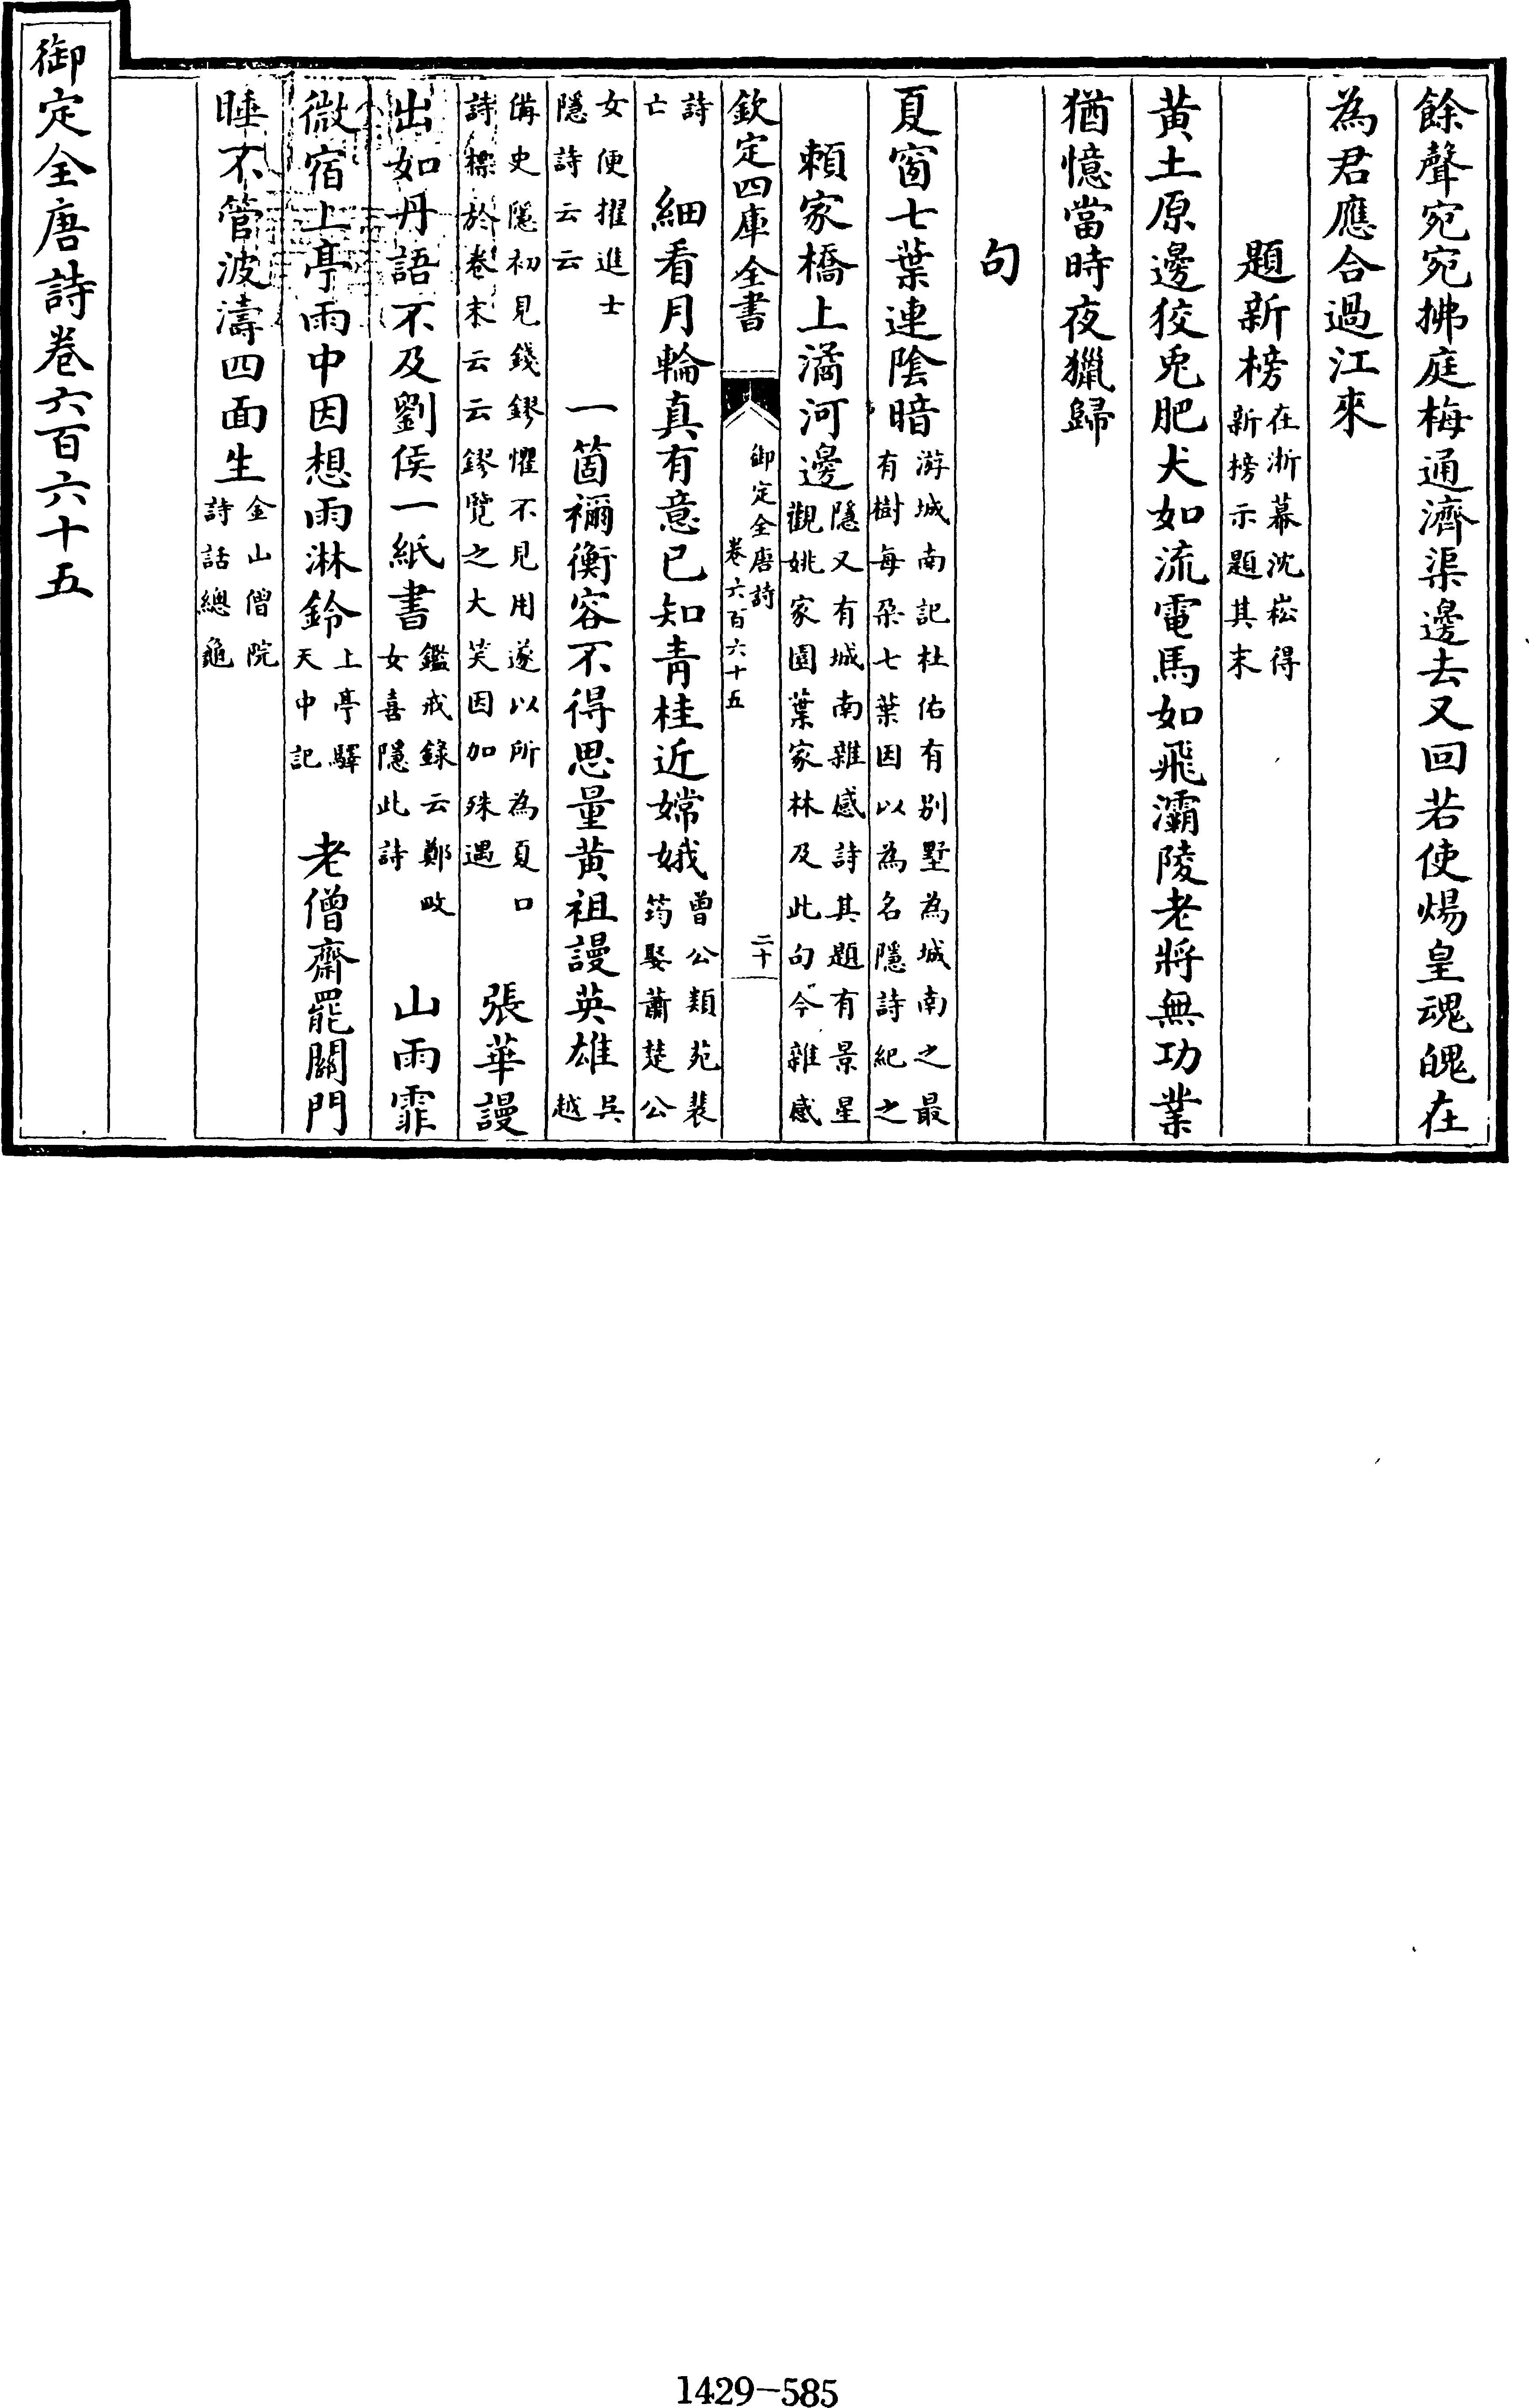 餘聲宛宛拂庭梅通濟渠邊去又回若使煬皇魂魄在
為君應合過江來
題新榜在浙幕沈崧得新榜示題其末
黃土原邊狡兎肥犬如流電馬如飛灞陵老將無功業
猶憶當時夜獵歸
句
夏窗七葉連陰暗游城南記杜佑有别墅為城南之最有樹每朶七葉因以為名隱詩紀之
賴家橋上潏河邊隱又有城南雜感詩其題有景星觀姚家園葉家林及此句今雜感
詩亡 細看月輪真有意已知青桂近嫦娥曾公類苑裴筠娶蕭楚公
女便擢進士隱詩云云 一箇禰衡容不得思量黃祖謾英雄吳越
備史隱初見錢鏐懼不見用遂以所為夏口詩標於卷末云云鏐覽之大笑因加殊遇 張華謾
出如丹語不及劉侯一紙書鑑戒録云鄭畋女喜隱此詩 山雨霏
微宿上亭雨中因想雨淋鈴上亭驛天中記 老僧齋罷關門
睡不管波濤四面生金山僧院詩話總龜
御定全唐詩卷六百六十五
欽定四庫全書
御定全唐詩
卷六百六十五
二十
1429-585